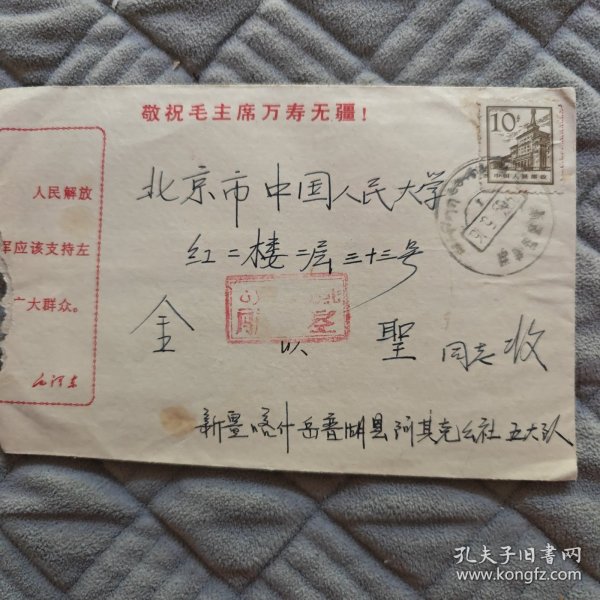 敬祝毛主席万寿无疆！
10分
中国人民邮政
人民解放
军应该支持左
广大群众。
毛泽东
北京市中国人民大学
红二楼二层三十三号
金以聖同志收
新疆喀什岳普湖县阿其克公社五大队
孔夫子旧书网
www.kongfz.com